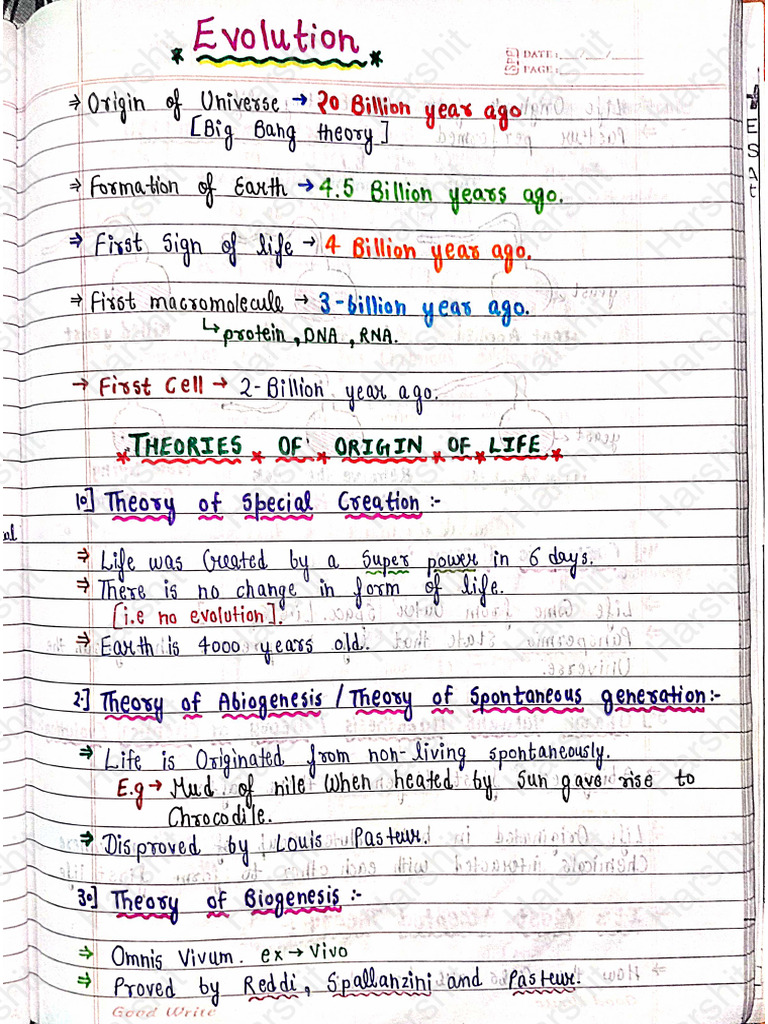 * Evolution *
DATE: __/__/__
PAGE: ______
⇒ Origin of Universe → 20 Billion year ago
[Big Bang theory]
⇒ Formation of Earth → 4.5 Billion years ago.
⇒ First Sign of life → 4 Billion year ago.
⇒ First macromolecule → 3-billion year ago.
↳ protein, DNA, RNA.
→ First Cell → 2-Billion year ago.
* THEORIES * OF * ORIGIN * OF * LIFE *
1.] Theory of Special Creation :-
⇒ Life was Created by a Super power in 6 days.
⇒ There is no change in form of life.
[i.e no evolution].
⇒ Earth is 4000 years old.
2.] Theory of Abiogenesis / Theory of Spontaneous generation:-
⇒ Life is Originated from non-living spontaneously.
E.g → Mud of nile When heated by Sun gave rise to
Chrocodile.
⇒ Disproved by Louis Pasteur.
3.] Theory of Biogenesis :-
⇒ Omnis Vivum. ex → Vivo
⇒ Proved by Reddi, Spallanzini and Pasteur.
Good Write
Harshit